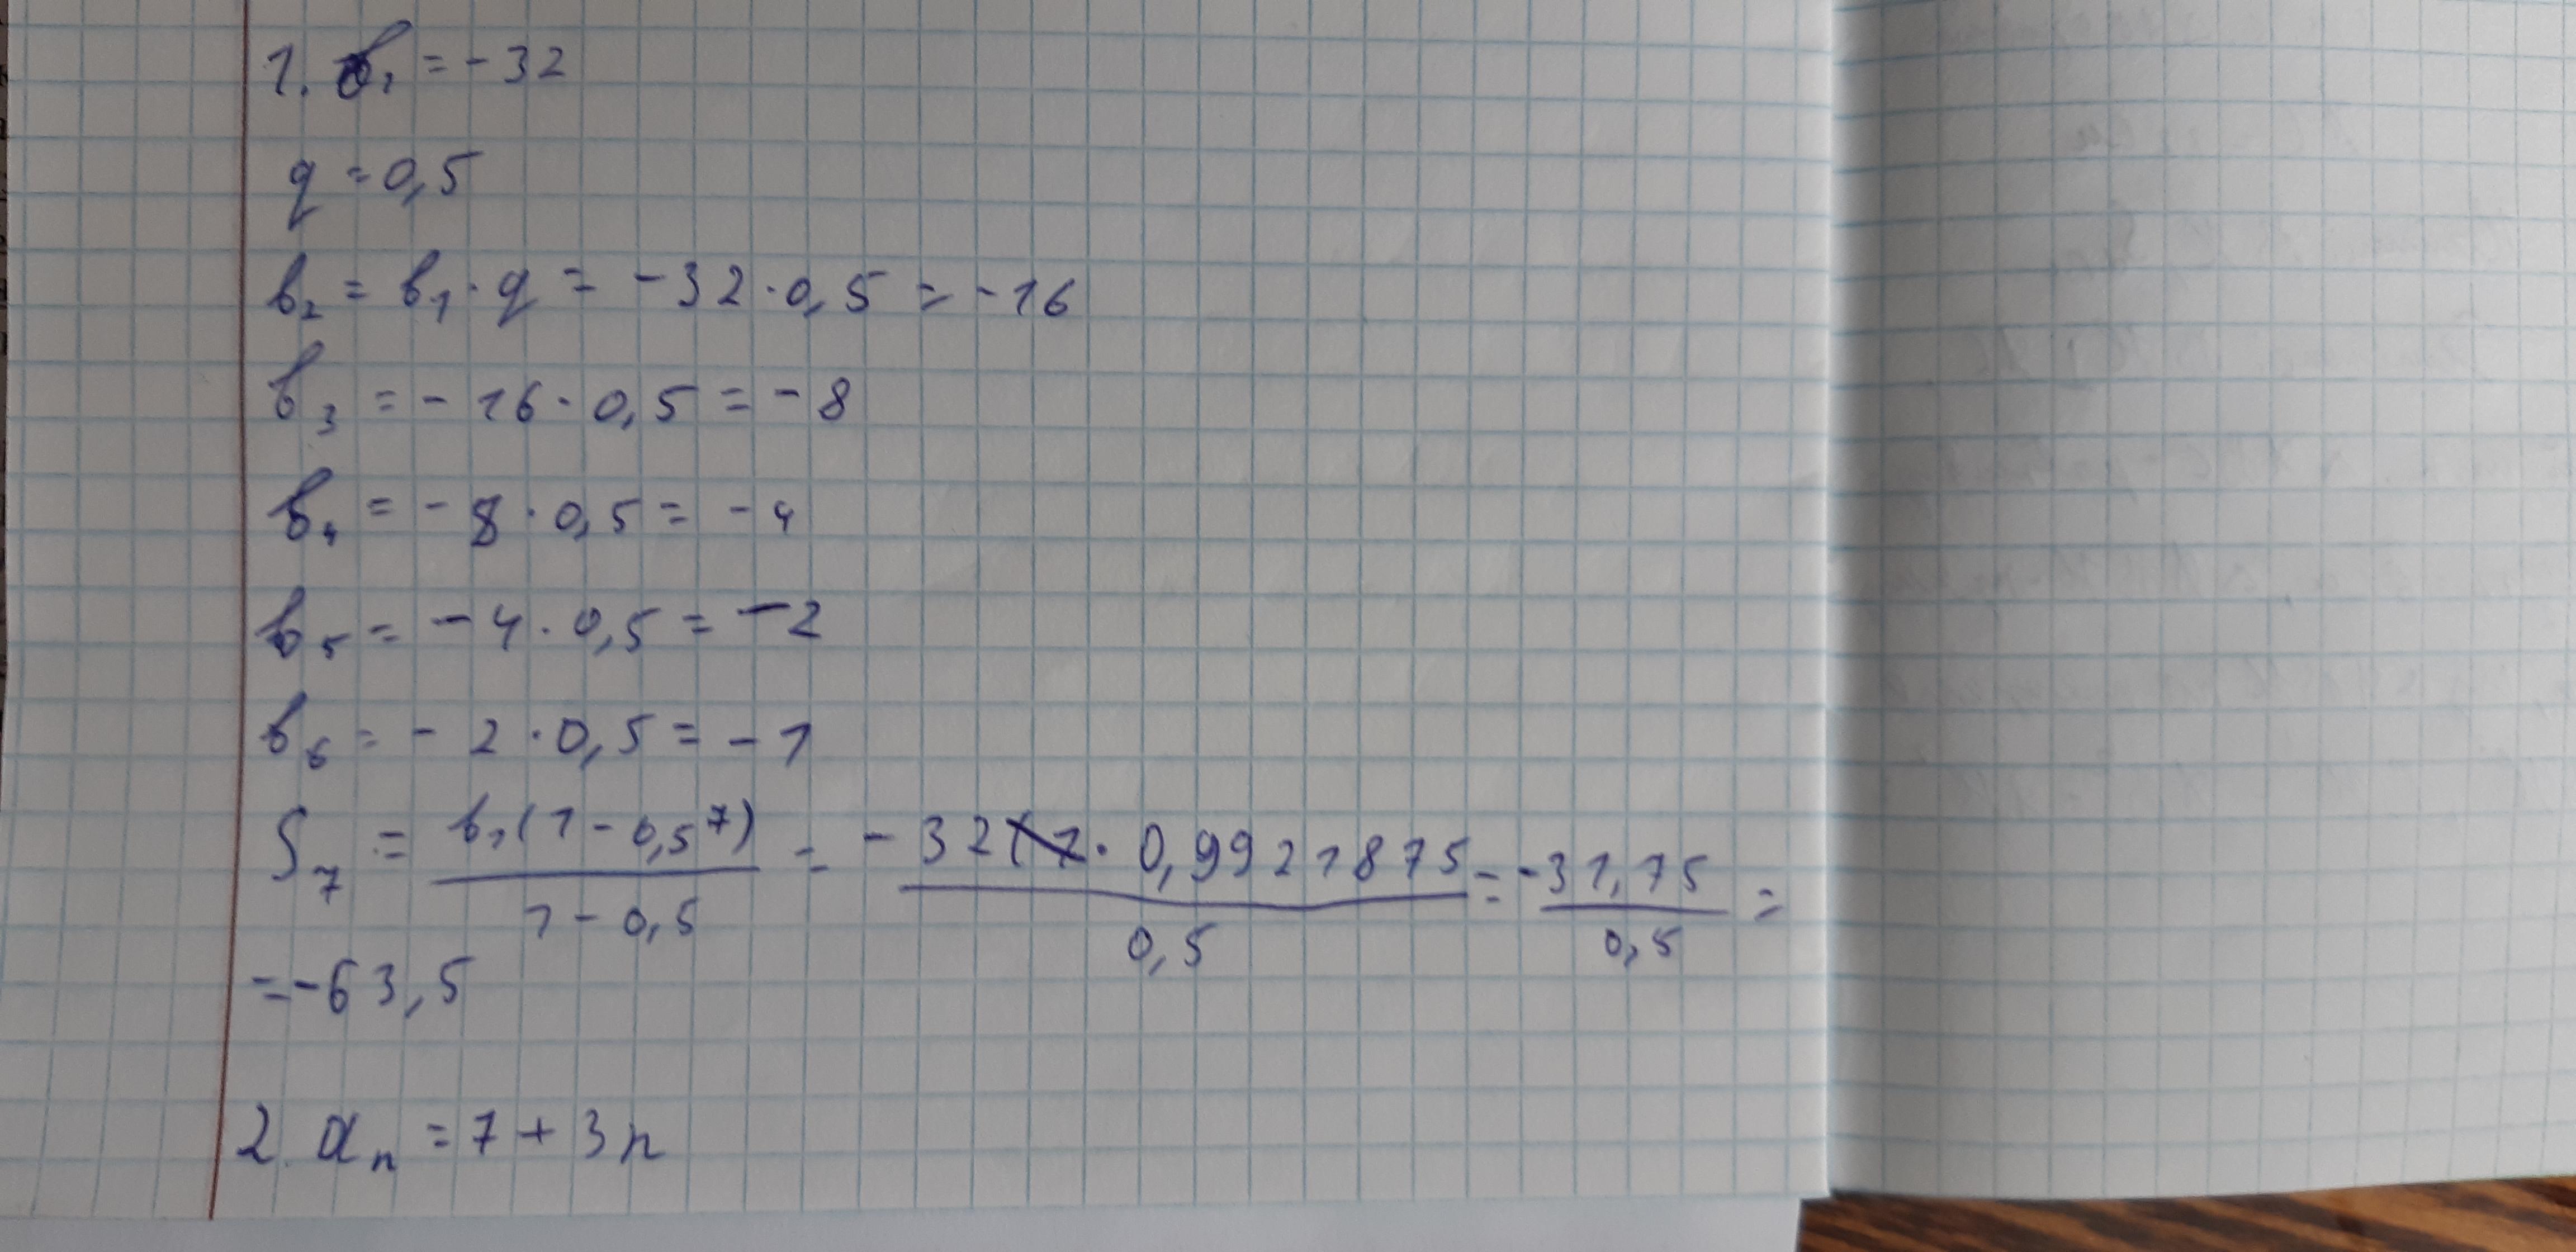 1. b₁ = -32
q = 0,5
b₂ = b₁ · q = -32 · 0,5 = -16
b₃ = -16 · 0,5 = -8
b₄ = -8 · 0,5 = -4
b₅ = -4 · 0,5 = -2
b₆ = -2 · 0,5 = -1
S₇ = b₁(1 - 0,5⁷) / 1 - 0,5 = -32 · 0,9921875 / 0,5 = -31,75 / 0,5 =
= -63,5
2. aₙ = 7 + 3n